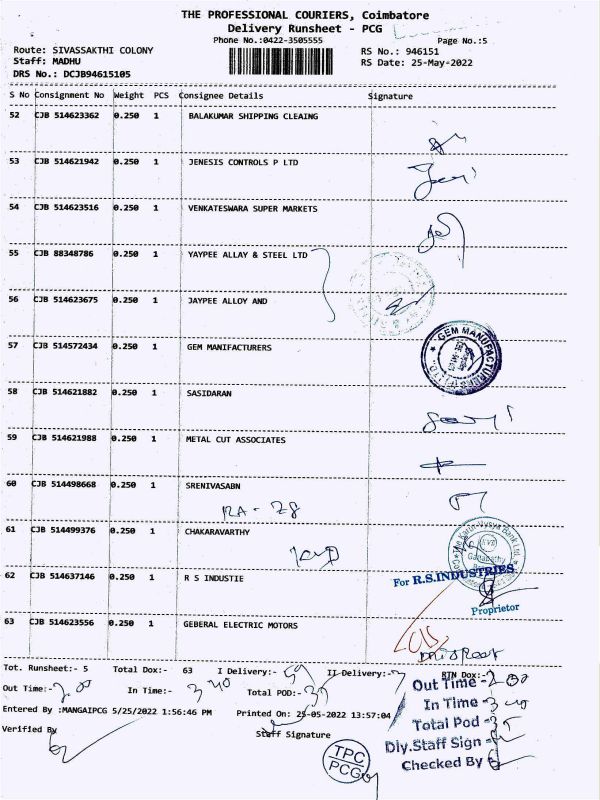 THE PROFESSIONAL COURIERS, Coimbatore
Delivery Runsheet - PCG
Phone No.:0422-3505555
Page No.:5
Route: SIVASSAKTHI COLONY
RS No.: 946151
Staff: MADHU
RS Date: 25-May-2022
DRS No.: DCJB94615105
S No Consignment No Weight PCS Consignee Details Signature
52 CJB 514623362 0.250 1 BALAKUMAR SHIPPING CLEAING
53 CJB 514621942 0.250 1 JENESIS CONTROLS P LTD
54 CJB 514623516 0.250 1 VENKATESWARA SUPER MARKETS
55 CJB 88348786 0.250 1 YAYPEE ALLAY & STEEL LTD
56 CJB 514623675 0.250 1 JAYPEE ALLOY AND
57 CJB 514572434 0.250 1 GEM MANIFACTURERS
GEM MANUFACTURING
58 CJB 514621882 0.250 1 SASIDARAN
59 CJB 514621988 0.250 1 METAL CUT ASSOCIATES
60 CJB 514498668 0.250 1 SRENIVASABN
RA - 78
61 CJB 514499376 0.250 1 CHAKARAVARTHY
The Karur Vysya Bank Ltd.
KVB
Ganapathy
62 CJB 514637146 0.250 1 R S INDUSTIE
For R.S.INDUSTRIES
Proprietor
63 CJB 514623556 0.250 1 GEBERAL ELECTRIC MOTORS
Tot. Runsheet:- 5 Total Dox:- 63 I Delivery:- 59 II Delivery:- RTN Dox:-
Out Time:- 2.00 In Time:- 3 40 Total POD:- 35
Out Time - 2 00
In Time - 3 40
Total Pod - 35
Dly.Staff Sign -
Checked By
Entered By :MANGAIPCG 5/25/2022 1:56:46 PM Printed On: 25-05-2022 13:57:04
Verified By
Staff Signature
TPC
PCG